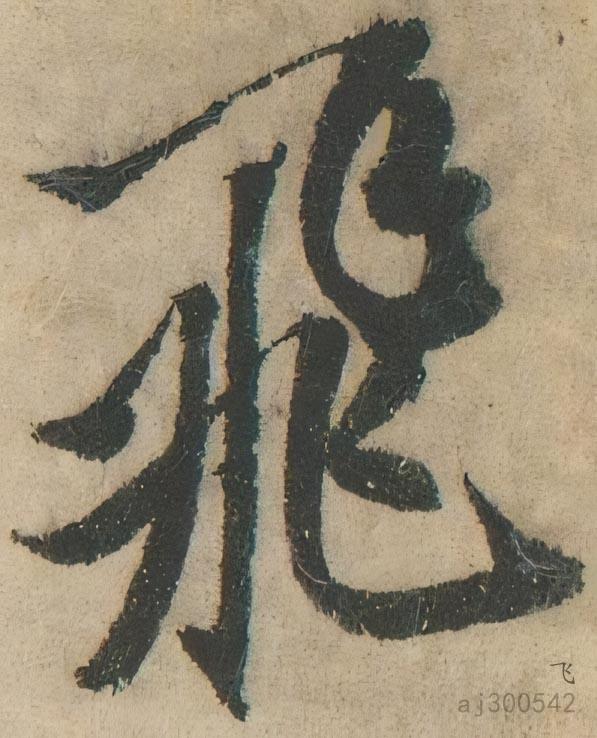 飛
飞
aj300542